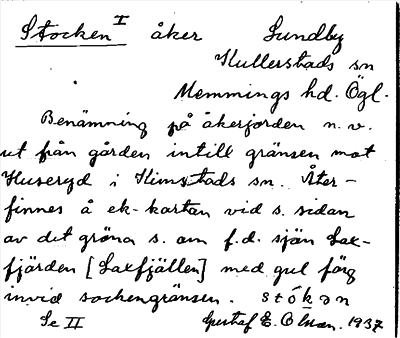 Stocken I åker Lundby
Kullerstads sn
Memmings hd. Ögl.
Benämning på åkerjorden n. v.
ut från gården intill gränsen mot
Huseryd i Kimstads sn. Åter-
finnes å ek-kartan vid s. sidan
av det gröna s. om f.d. sjön Lax-
fjärden [Laxfjällen] med gul färg
invid sockengränsen. stókən
Se II Gustaf E. Olsson. 1937